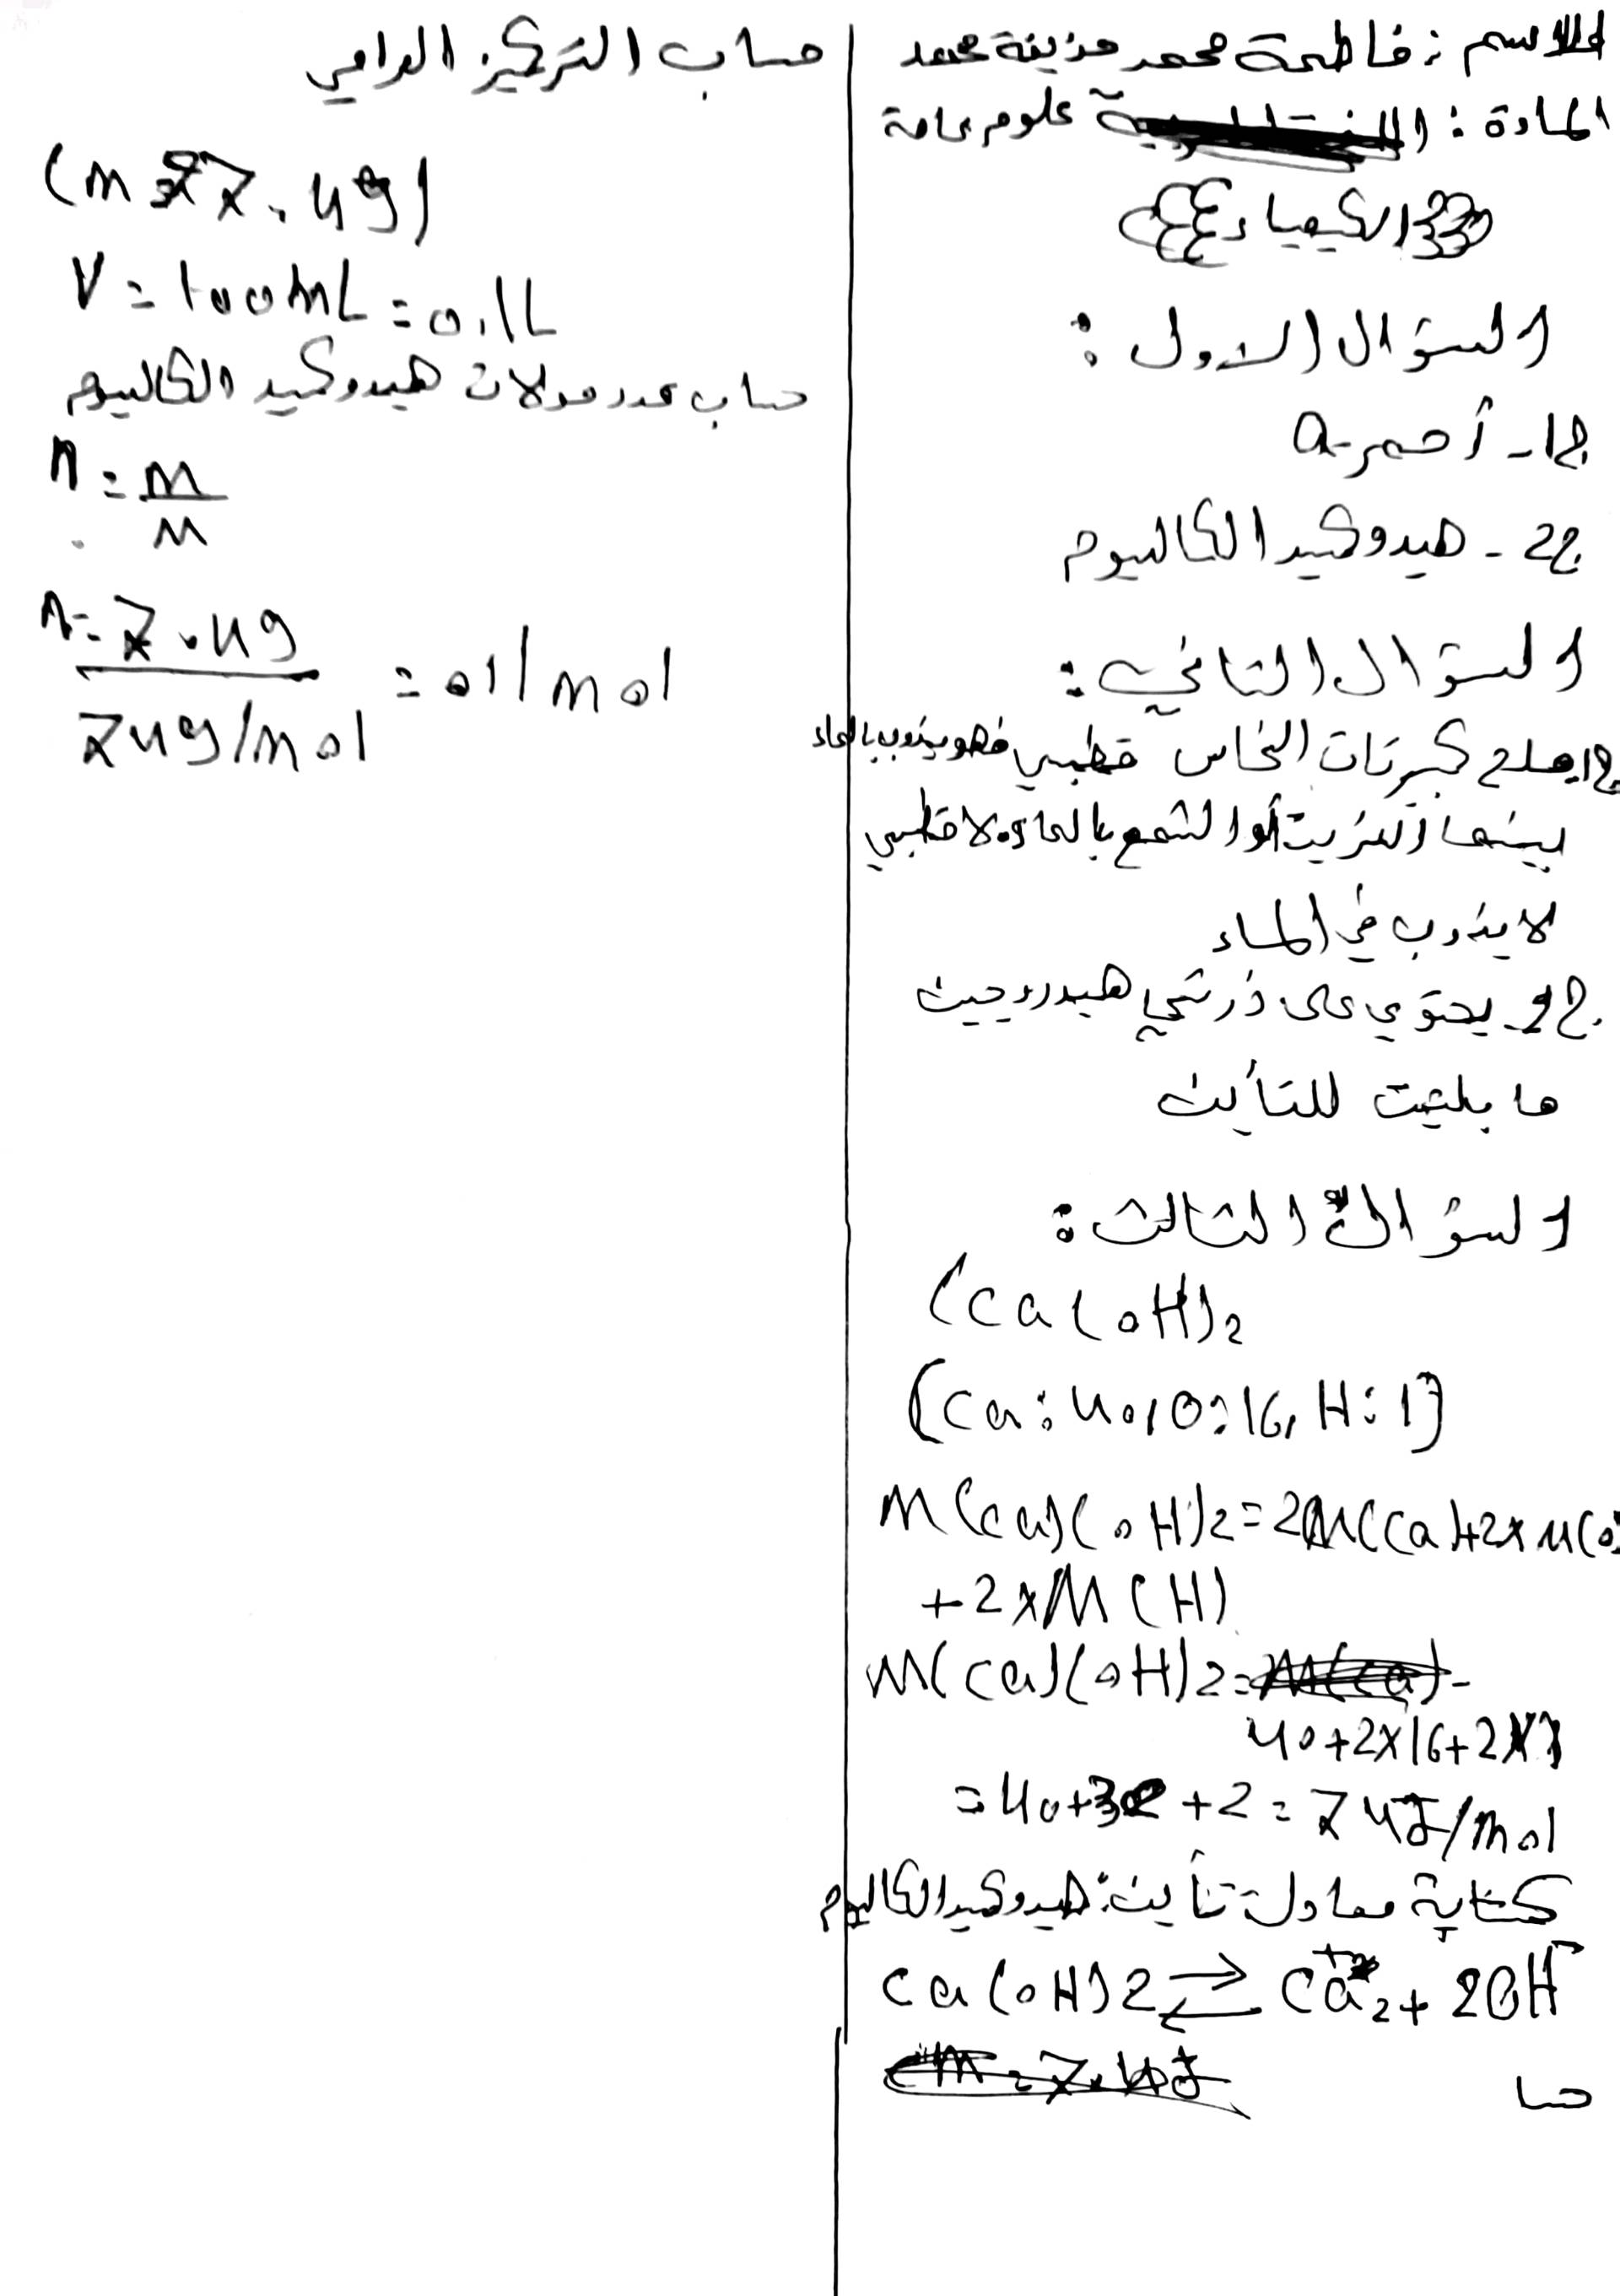 الاسم : فاطمة محمد مزينة محمد
المادة : علوم عامة
الكيمياء
السؤال الاول :
ج1- أحمر -a
ج2 - هيدوكسيد الكالسيوم
السؤال الثاني :
ج1- ملح كبرتات النحاس قطبي فهو يذوب بالماء
بينما الزيت أو الشمع بالماء لا قطبي
لا يذوب في الماء
ج2- يحتوي على ذرتي هيدروجين
ما بلتيت للتأين
السؤال الثالث :
(Ca(OH)2
(Ca:40,O:16,H:1)
M(Ca)(OH)2=2M(Ca)+2xM(O)
+2xM(H)
M(Ca)(OH)2=
40+2x16+2x1
=40+32+2=74g/mol
كتابة معادلة تأين هيدوكسيد الكاليوم
Ca(OH)2⇄Ca+2 2+2OH-
حسا
حساب التركيز الرامي
(m=7.4g)
V=100mL=0.1L
حساب عدد مولات هيدوكسيد الكالسيوم
n=m/M
n=7.4g/74g/mol=011mol